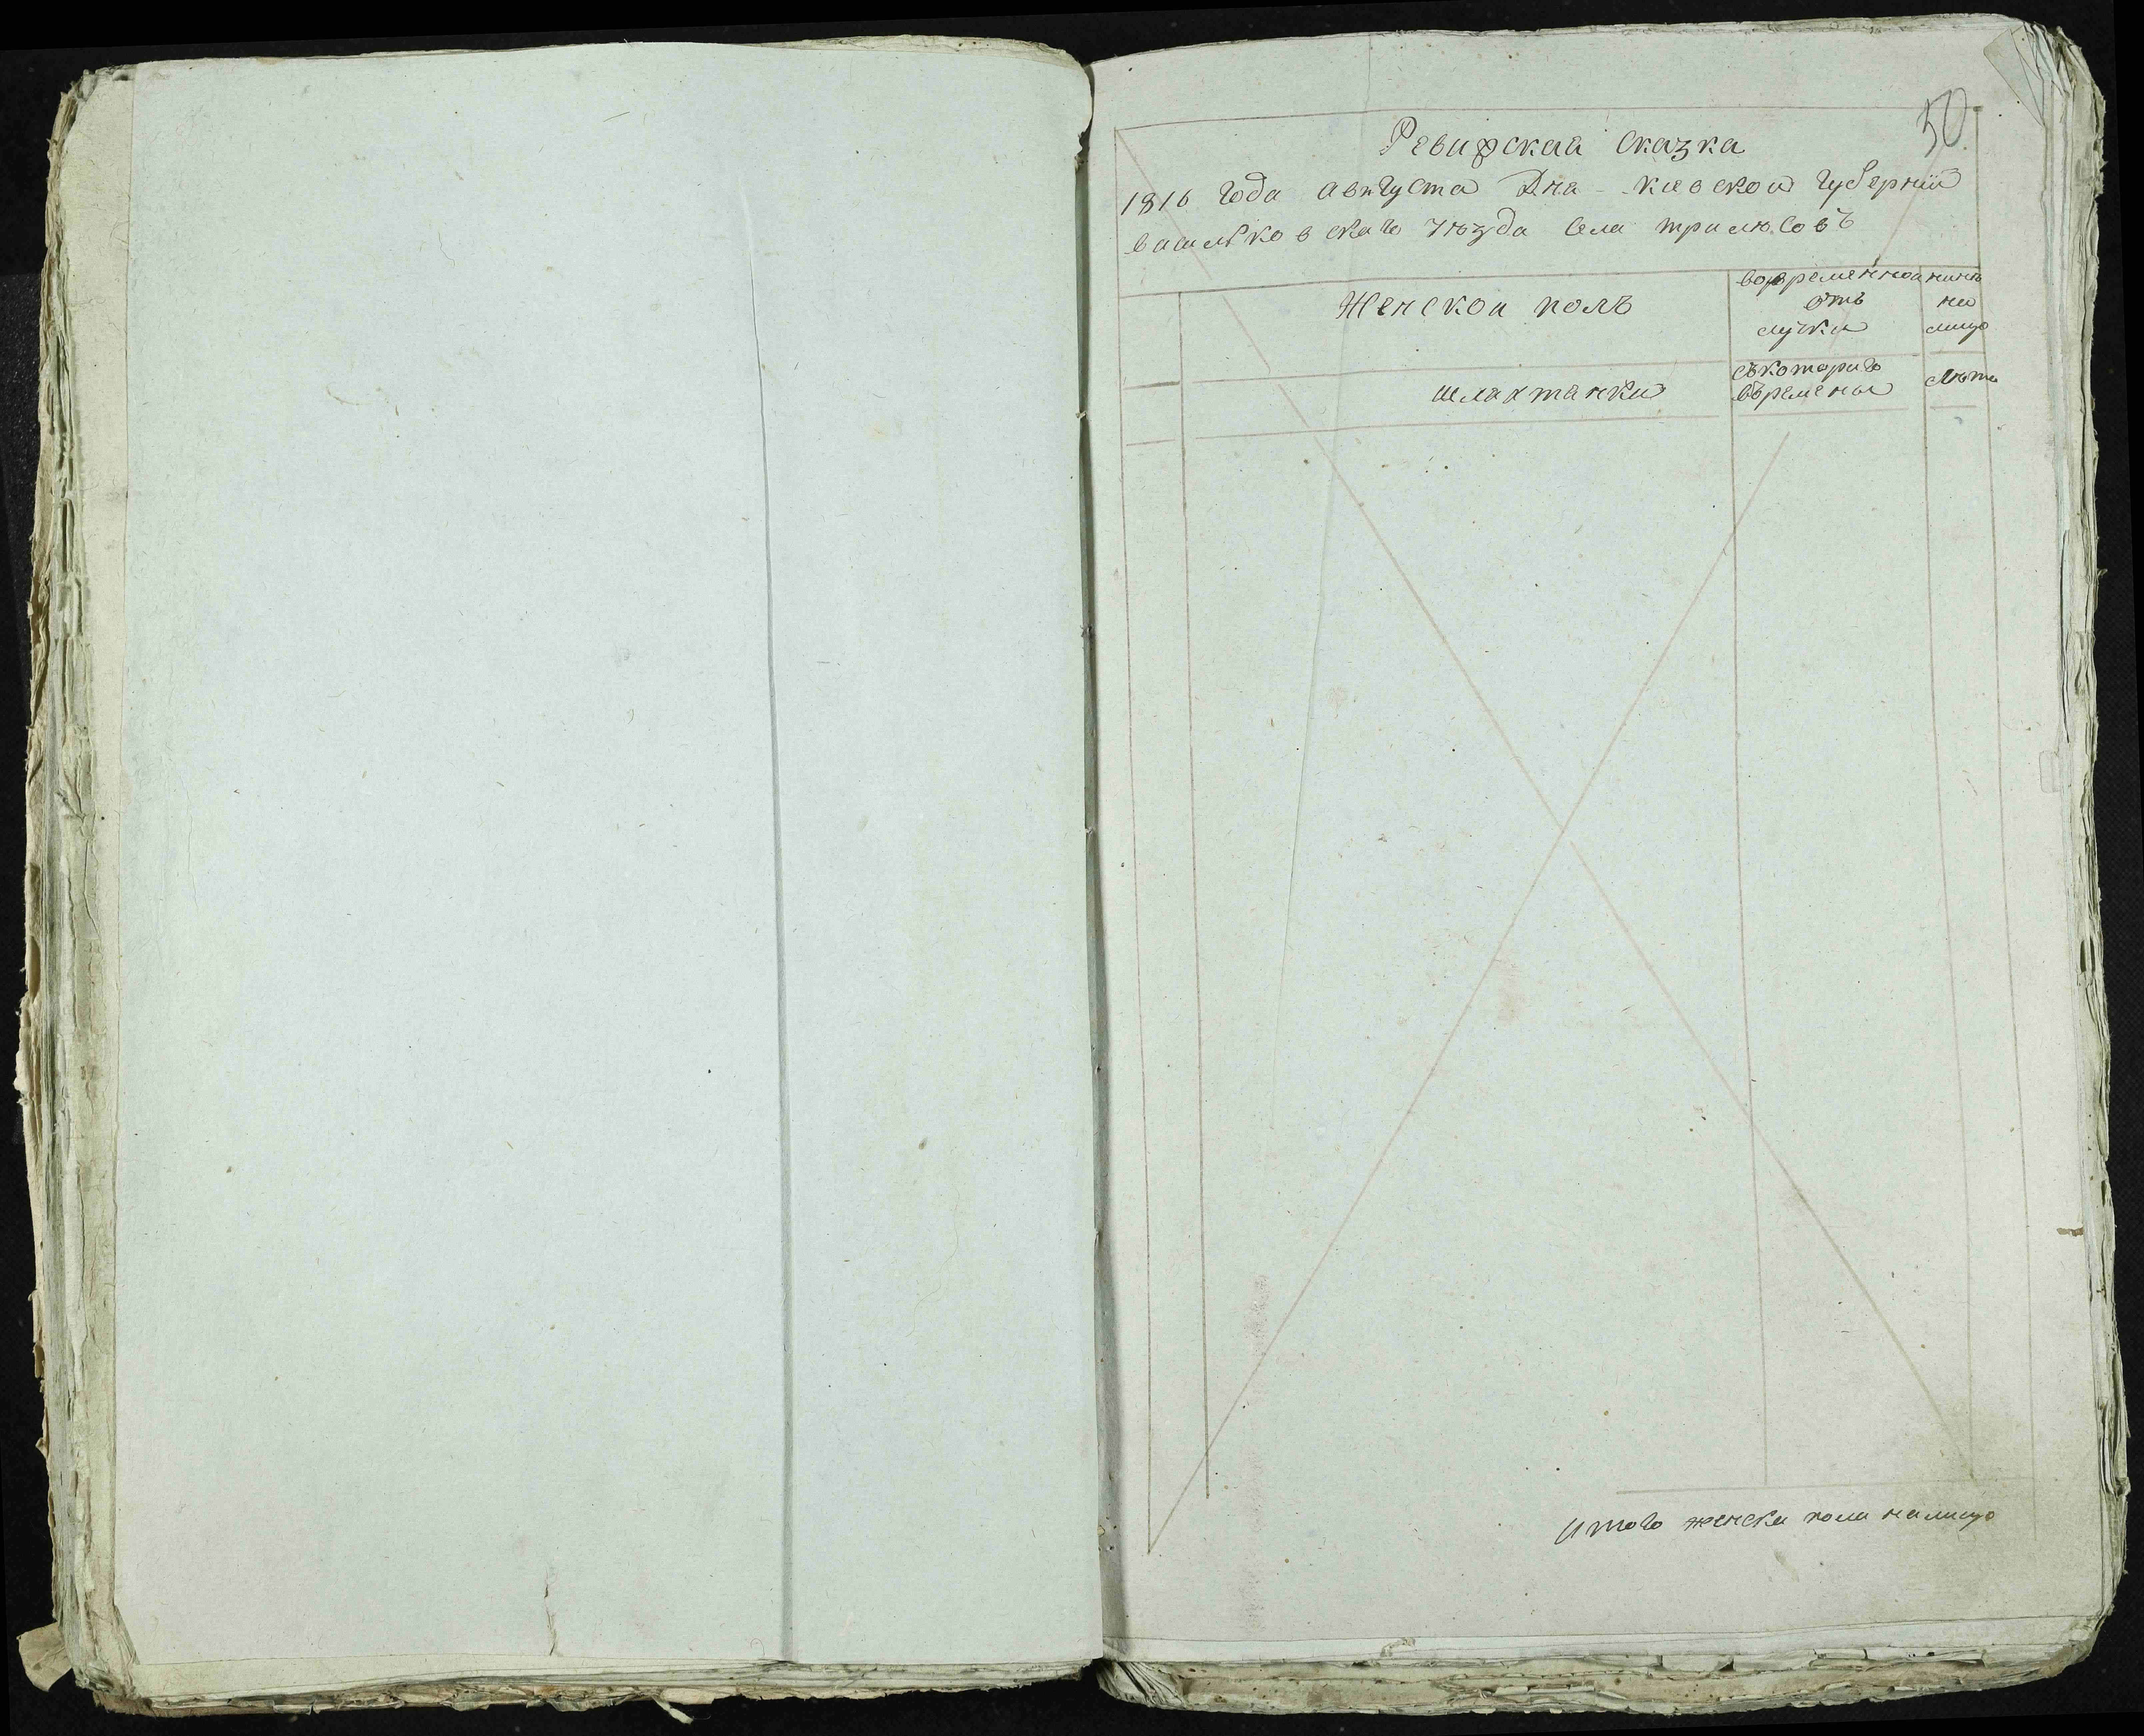 50
Ревизская сказка
1816 года августа Дня - киевской губернии
васильковскаго уѣзда села трилѣсовъ
Женской полъ
вовременной
отъ
лучки
нынѣ
на
лицо
шляхтянки
сѣкотораго
времены
лѣта
итого женска пола налицо